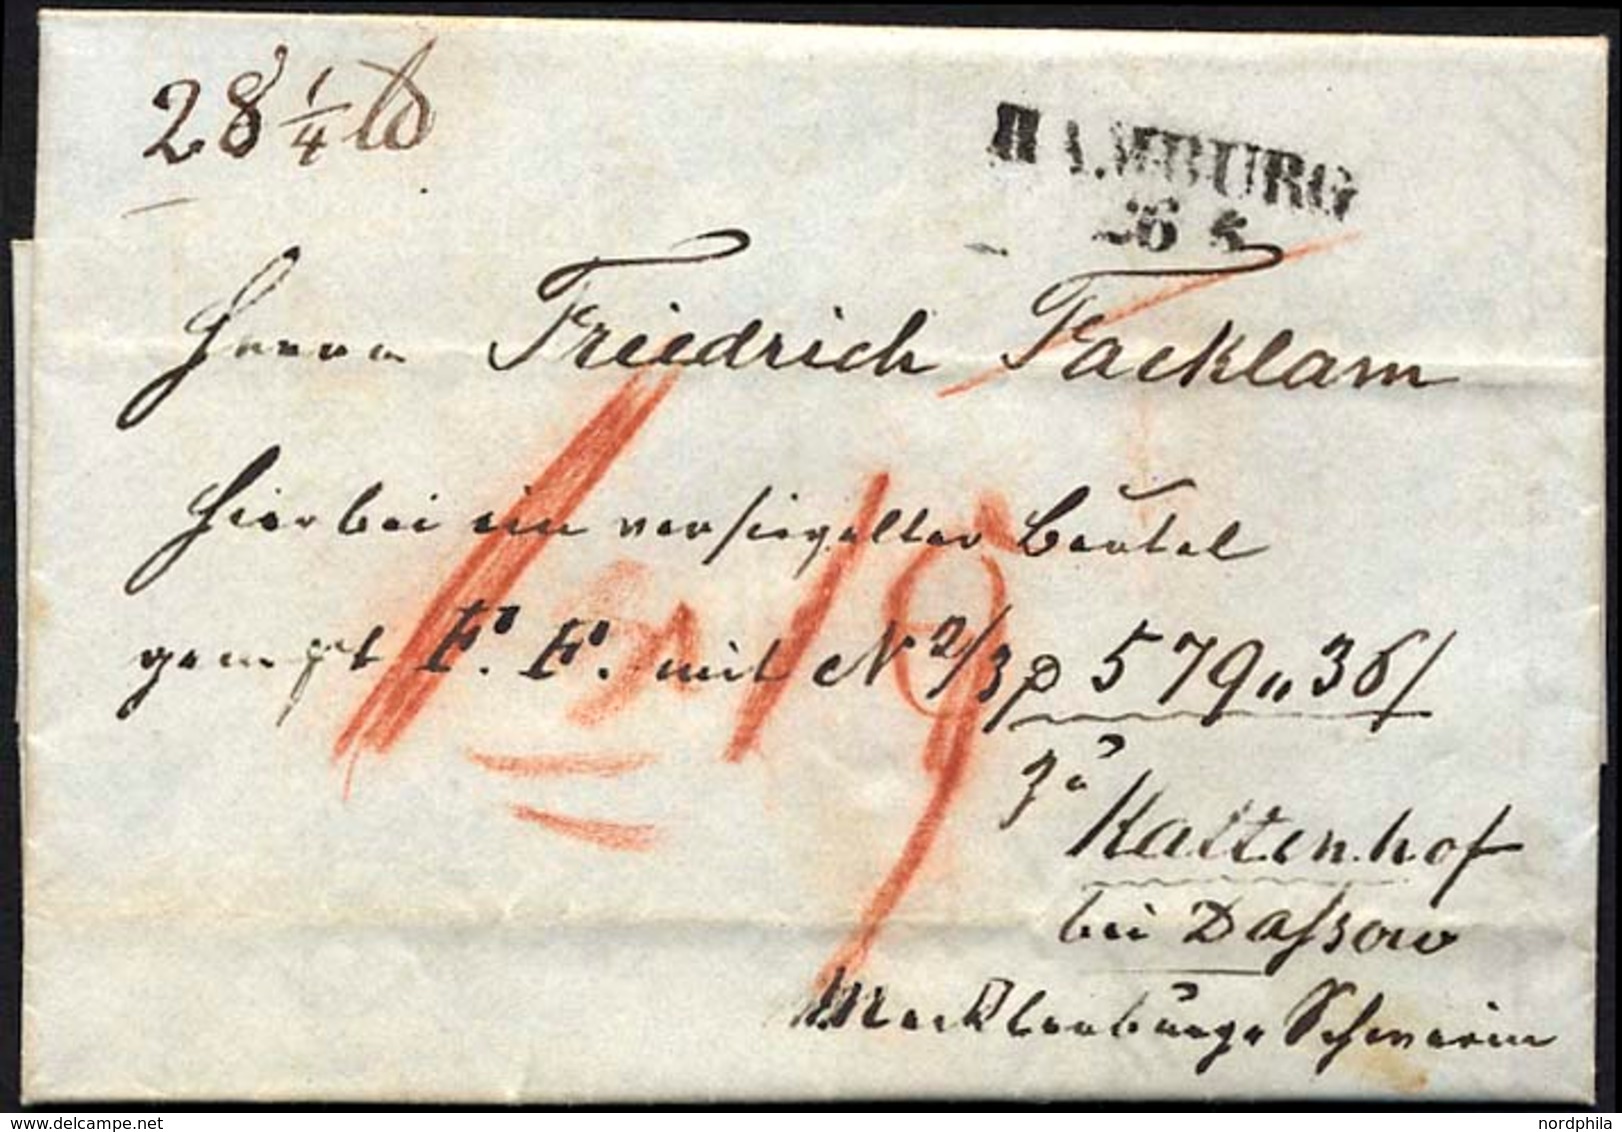 28 1/4 lb
HAMBURG
26 5
Herrn Friedrich Facklam
hierbei ein versiegelter Beutel
gempt F. F. mit N 2/3 p 579 „ 36/
1 19
zu
Kaltenhof
bei Dassow
Mecklenburg Schwerin
nordphila